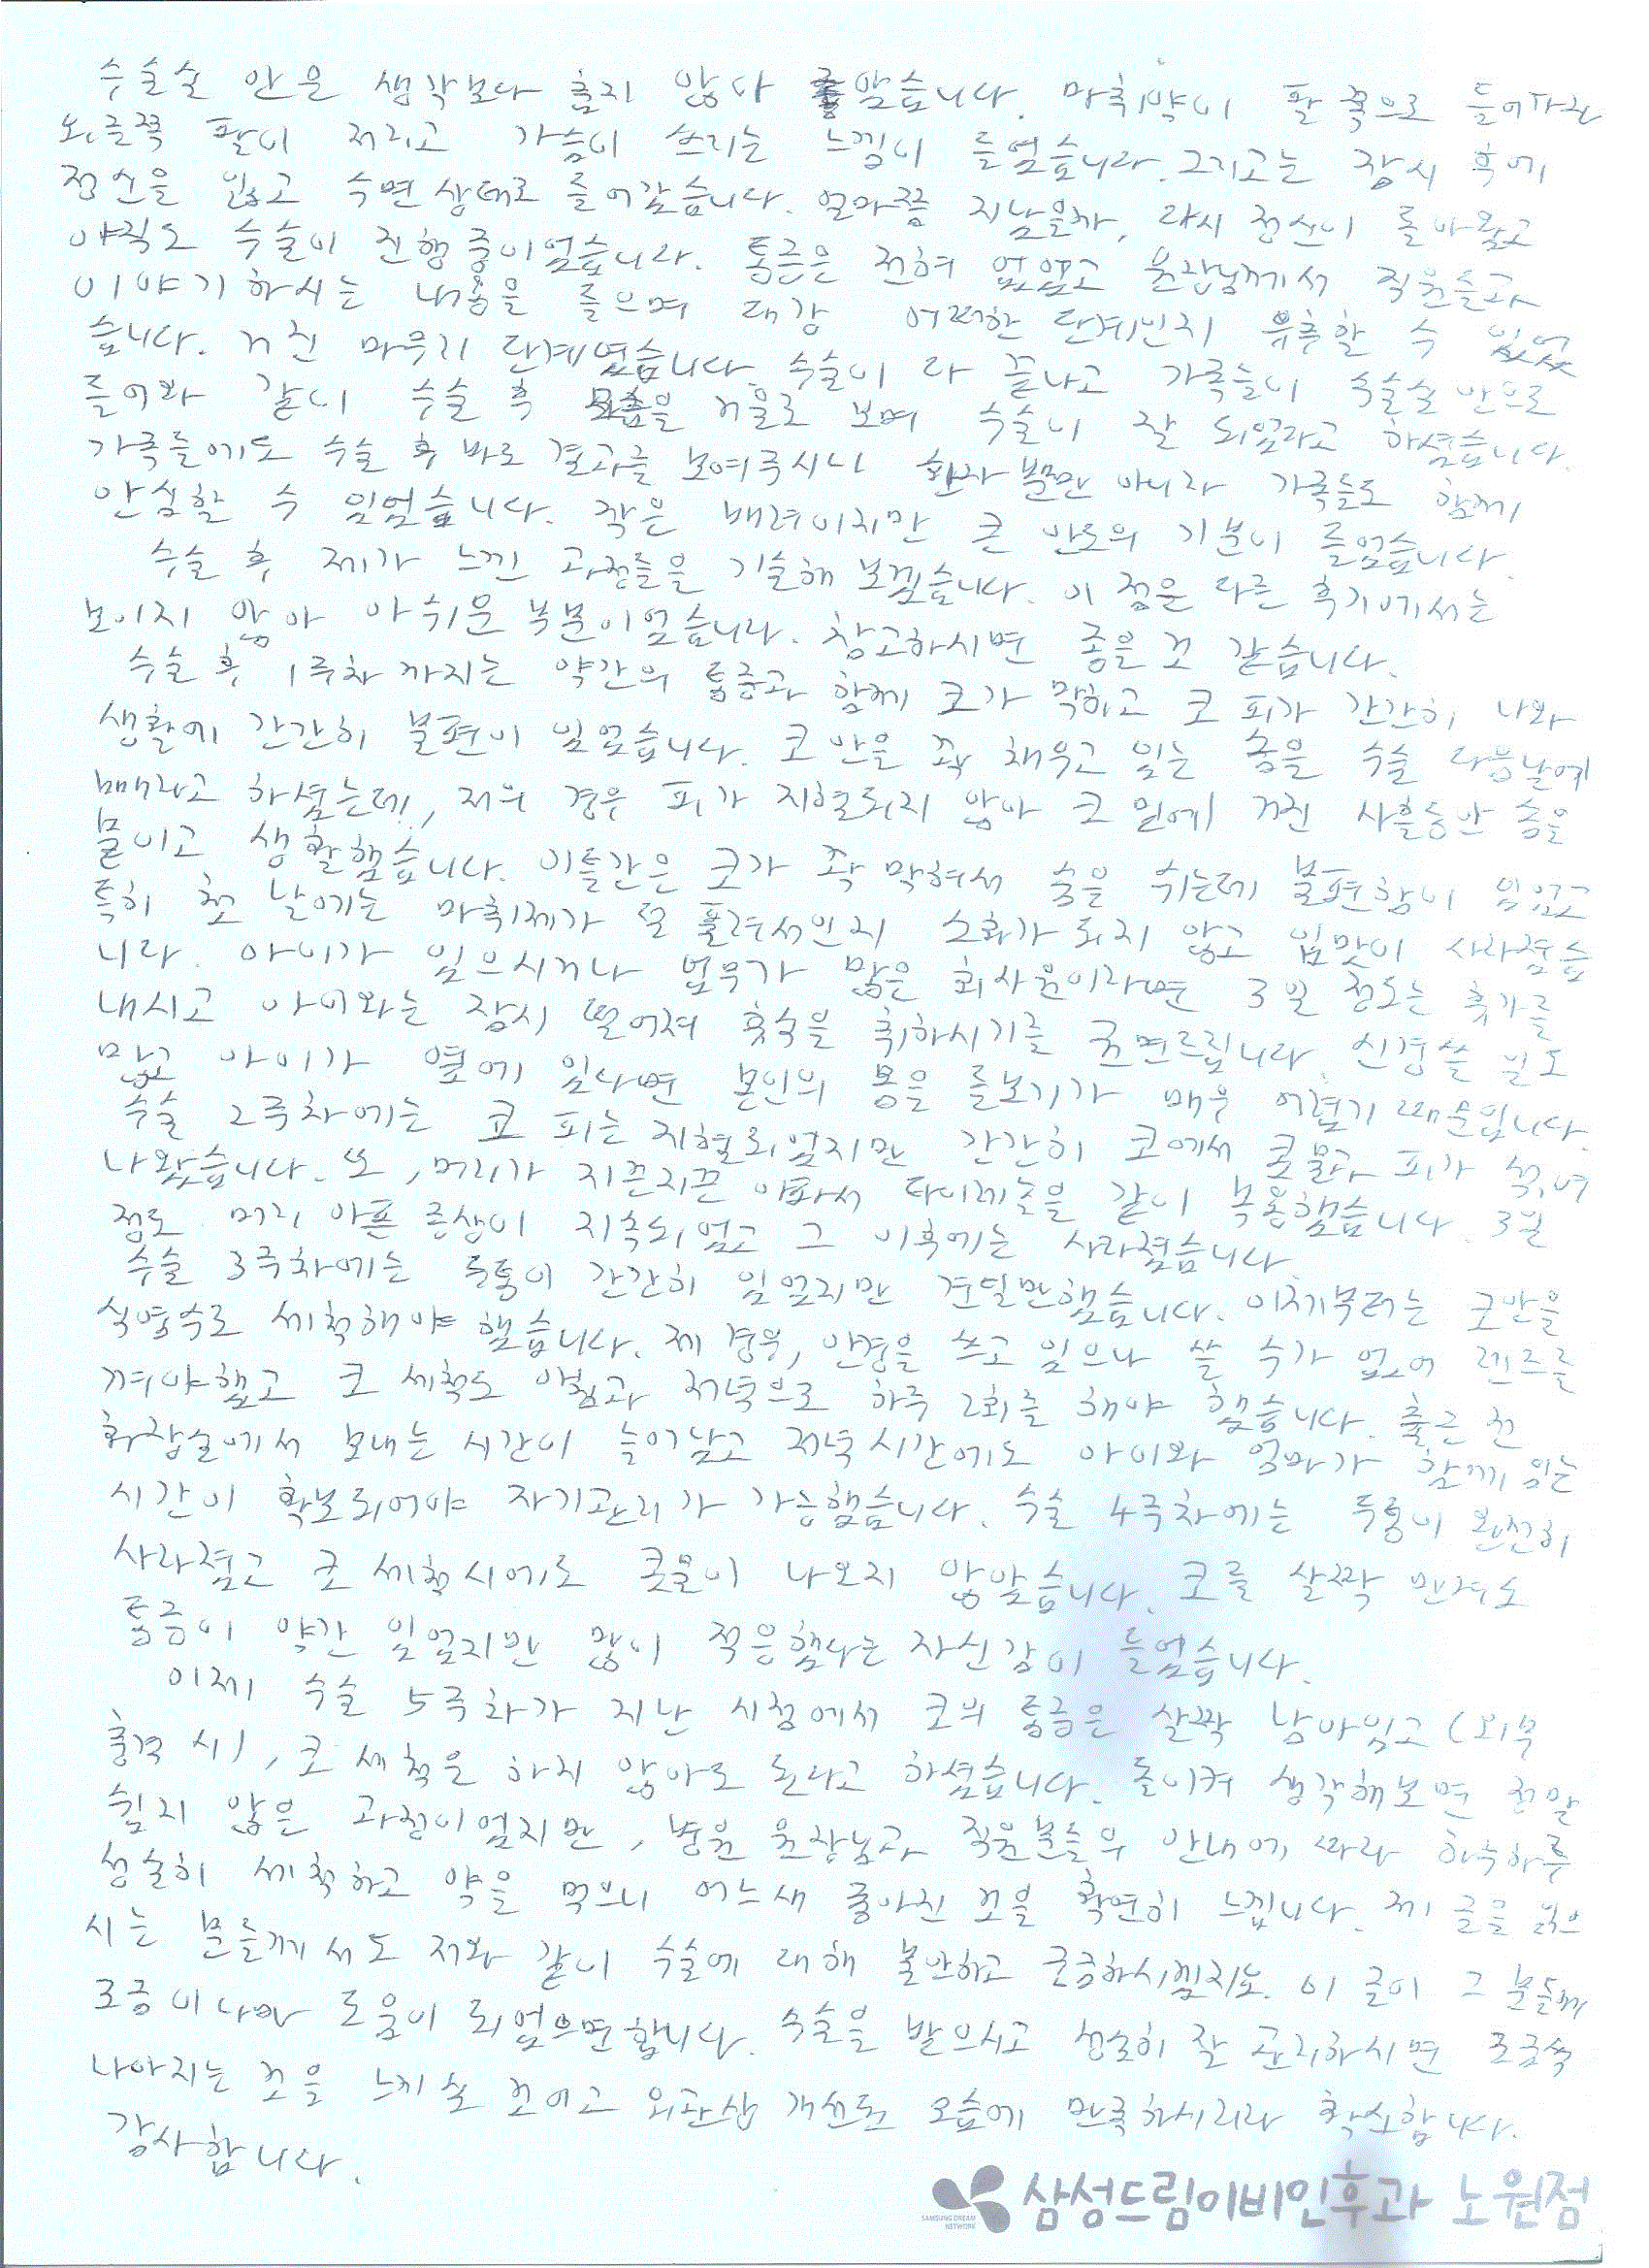 수술실 안은 생각보다 춥지 않아 좋았습니다. 마취약이 팔 쪽으로 들어가는
왼쪽 팔이 저리고 가슴이 쓰리는 느낌이 들었습니다. 그리고는 잠시 후에
정신을 잃고 수면상태로 들어갔습니다. 얼마쯤 지났을까, 다시 정신이 돌아왔고
아직도 수술이 진행중이었습니다. 통증은 전혀 없었고 원장님께서 직원들과
이야기하시는 내용을 들으며 대강 어떠한 단계인지 유추할 수 있었
습니다. 거진 마무리 단계였습니다. 수술이 다 끝나고 가족들이 수술실 안으로
들어와 같이 수술 후 모습을 거울로 보며 수술이 잘 되었다고 하셨습니다.
가족들에도 수술 후 바로 결과를 보여주시니 환자 뿐만 아니라 가족들도 함께
안심할 수 있었습니다. 작은 배려이지만 큰 안도의 기분이 들었습니다.
수술 후 제가 느낀 과정들을 기술해 보겠습니다. 이 점은 다른 후기에서는
보이지 않아 아쉬운 부분이었습니다. 참고하시면 좋을 것 같습니다.
수술 후 1주차 까지는 약간의 통증과 함께 코가 막히고 코 피가 간간히 나와
생활에 간간히 불편이 있었습니다. 코 안을 꽉 채우고 있는 솜을 수술 다음날에
빼라고 하셨는데, 저의 경우 피가 지혈되지 않아 코 밑에 거진 사흘동안 솜을
붙이고 생활했습니다. 이틀간은 코가 꽉 막혀서 숨을 쉬는데 불편함이 있었고
특히 첫 날에는 마취제가 덜 풀려서인지 소화가 되지 않고 입맛이 사라졌습
니다. 아이가 있으시거나 업무가 많은 회사원이라면 3일 정도는 휴가를
내시고 아이와는 잠시 떨어져 휴식을 취하시기를 권면드립니다. 신경쓸 일도
많고 아이가 옆에 있다면 본인의 몸을 돌보기가 매우 어렵기 때문입니다.
수술 2주차에는 코 피는 지혈되었지만 간간히 코에서 콧물과 피가 섞여
나왔습니다. 또, 머리가 지끈지끈 아파서 타이레놀을 같이 복용했습니다. 3일
정도 머리 아픈 증상이 지속되었고 그 이후에는 사라졌습니다.
수술 3주차에는 두통이 간간히 있었지만 견딜만했습니다. 이제부터는 코안을
식염수로 세척해야 했습니다. 제 경우, 안경을 쓰고 있으나 쓸 수가 없어 렌즈를
껴야했고 코 세척도 아침과 저녁으로 하루 2회를 해야 했습니다. 출근 전
화장실에서 보내는 시간이 늘어났고 저녁시간에도 아이와 엄마가 함께 있는
시간이 확보되어야 자기관리가 가능했습니다. 수술 4주차에는 두통이 완전히
사라졌고 코 세척시에도 콧물이 나오지 않았습니다. 코를 살짝 만져도
통증이 약간 있었지만 많이 적응했다는 자신감이 들었습니다.
이제 수술 5주차가 지난 시점에서 코의 통증은 살짝 남아있고 (외부
충격 시), 코 세척은 하지 않아도 된다고 하셨습니다. 돌이켜 생각해보면 정말
쉽지 않은 과정이었지만, 병원 원장님과 직원분들의 안내에 따라 하루하루
성실히 세척하고 약을 먹으니 어느새 좋아진 것을 확연히 느낍니다. 제 글을 읽으
시는 분들께서도 저와 같이 수술에 대해 불안하고 궁금하시겠지요. 이 글이 그 분들께
조금이나마 도움이 되었으면합니다. 수술을 받으시고 성실히 잘 관리하시면 조금씩
나아지는 것을 느끼실 것이고 외관상 개선된 모습에 만족하시리라 확신합니다.
감사합니다.
SAMSUNG DREAM NETWORK 삼성드림이비인후과 노원점